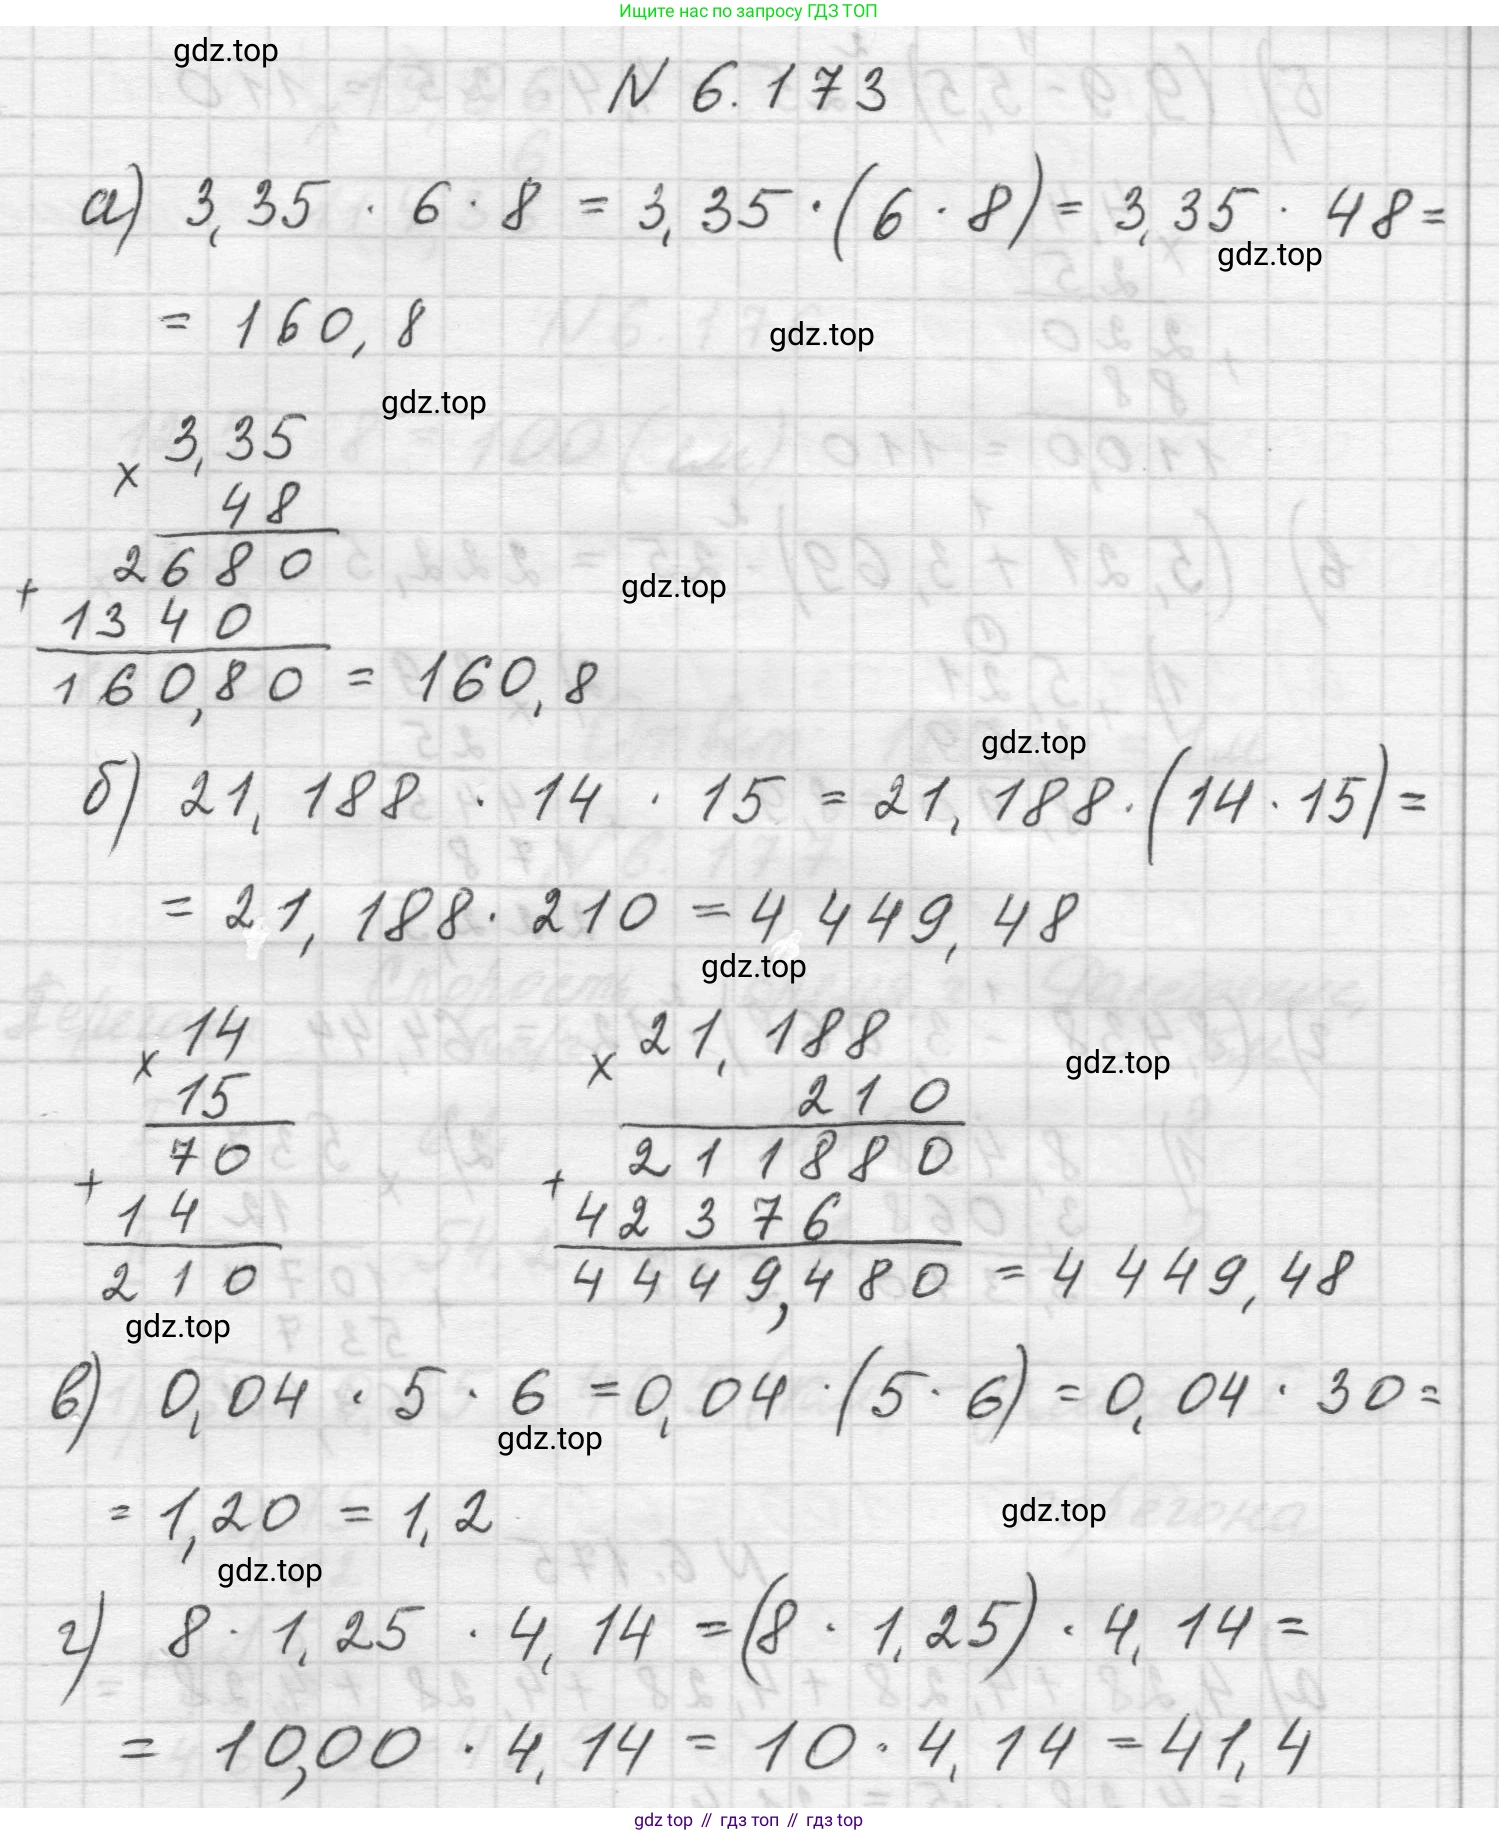 Ищите нас по запросу ГДЗ ТОП
gdz.top
N 6.173
а) 3,35 · 6 · 8 = 3,35 · (6 · 8) = 3,35 · 48 =
gdz.top
= 160,8
gdz.top
gdz.top
3,35
×
48
2680
+
gdz.top
1340
160,80 = 160,8
gdz.top
б) 21,188 · 14 · 15 = 21,188 · (14 · 15) =
= 21,188 · 210 = 4449,48
gdz.top
14 21,188
× ×
gdz.top
15 210
70 211880
+ +
14 42376
210 4449,480 = 4449,48
gdz.top
в) 0,04 · 5 · 6 = 0,04 · (5 · 6) = 0,04 · 30 =
gdz.top
= 1,20 = 1,2
gdz.top
gdz.top
г) 8 · 1,25 · 4,14 = (8 · 1,25) · 4,14 =
= 10,00 · 4,14 = 10 · 4,14 = 41,4
gdz top // гдз топ // гдз top